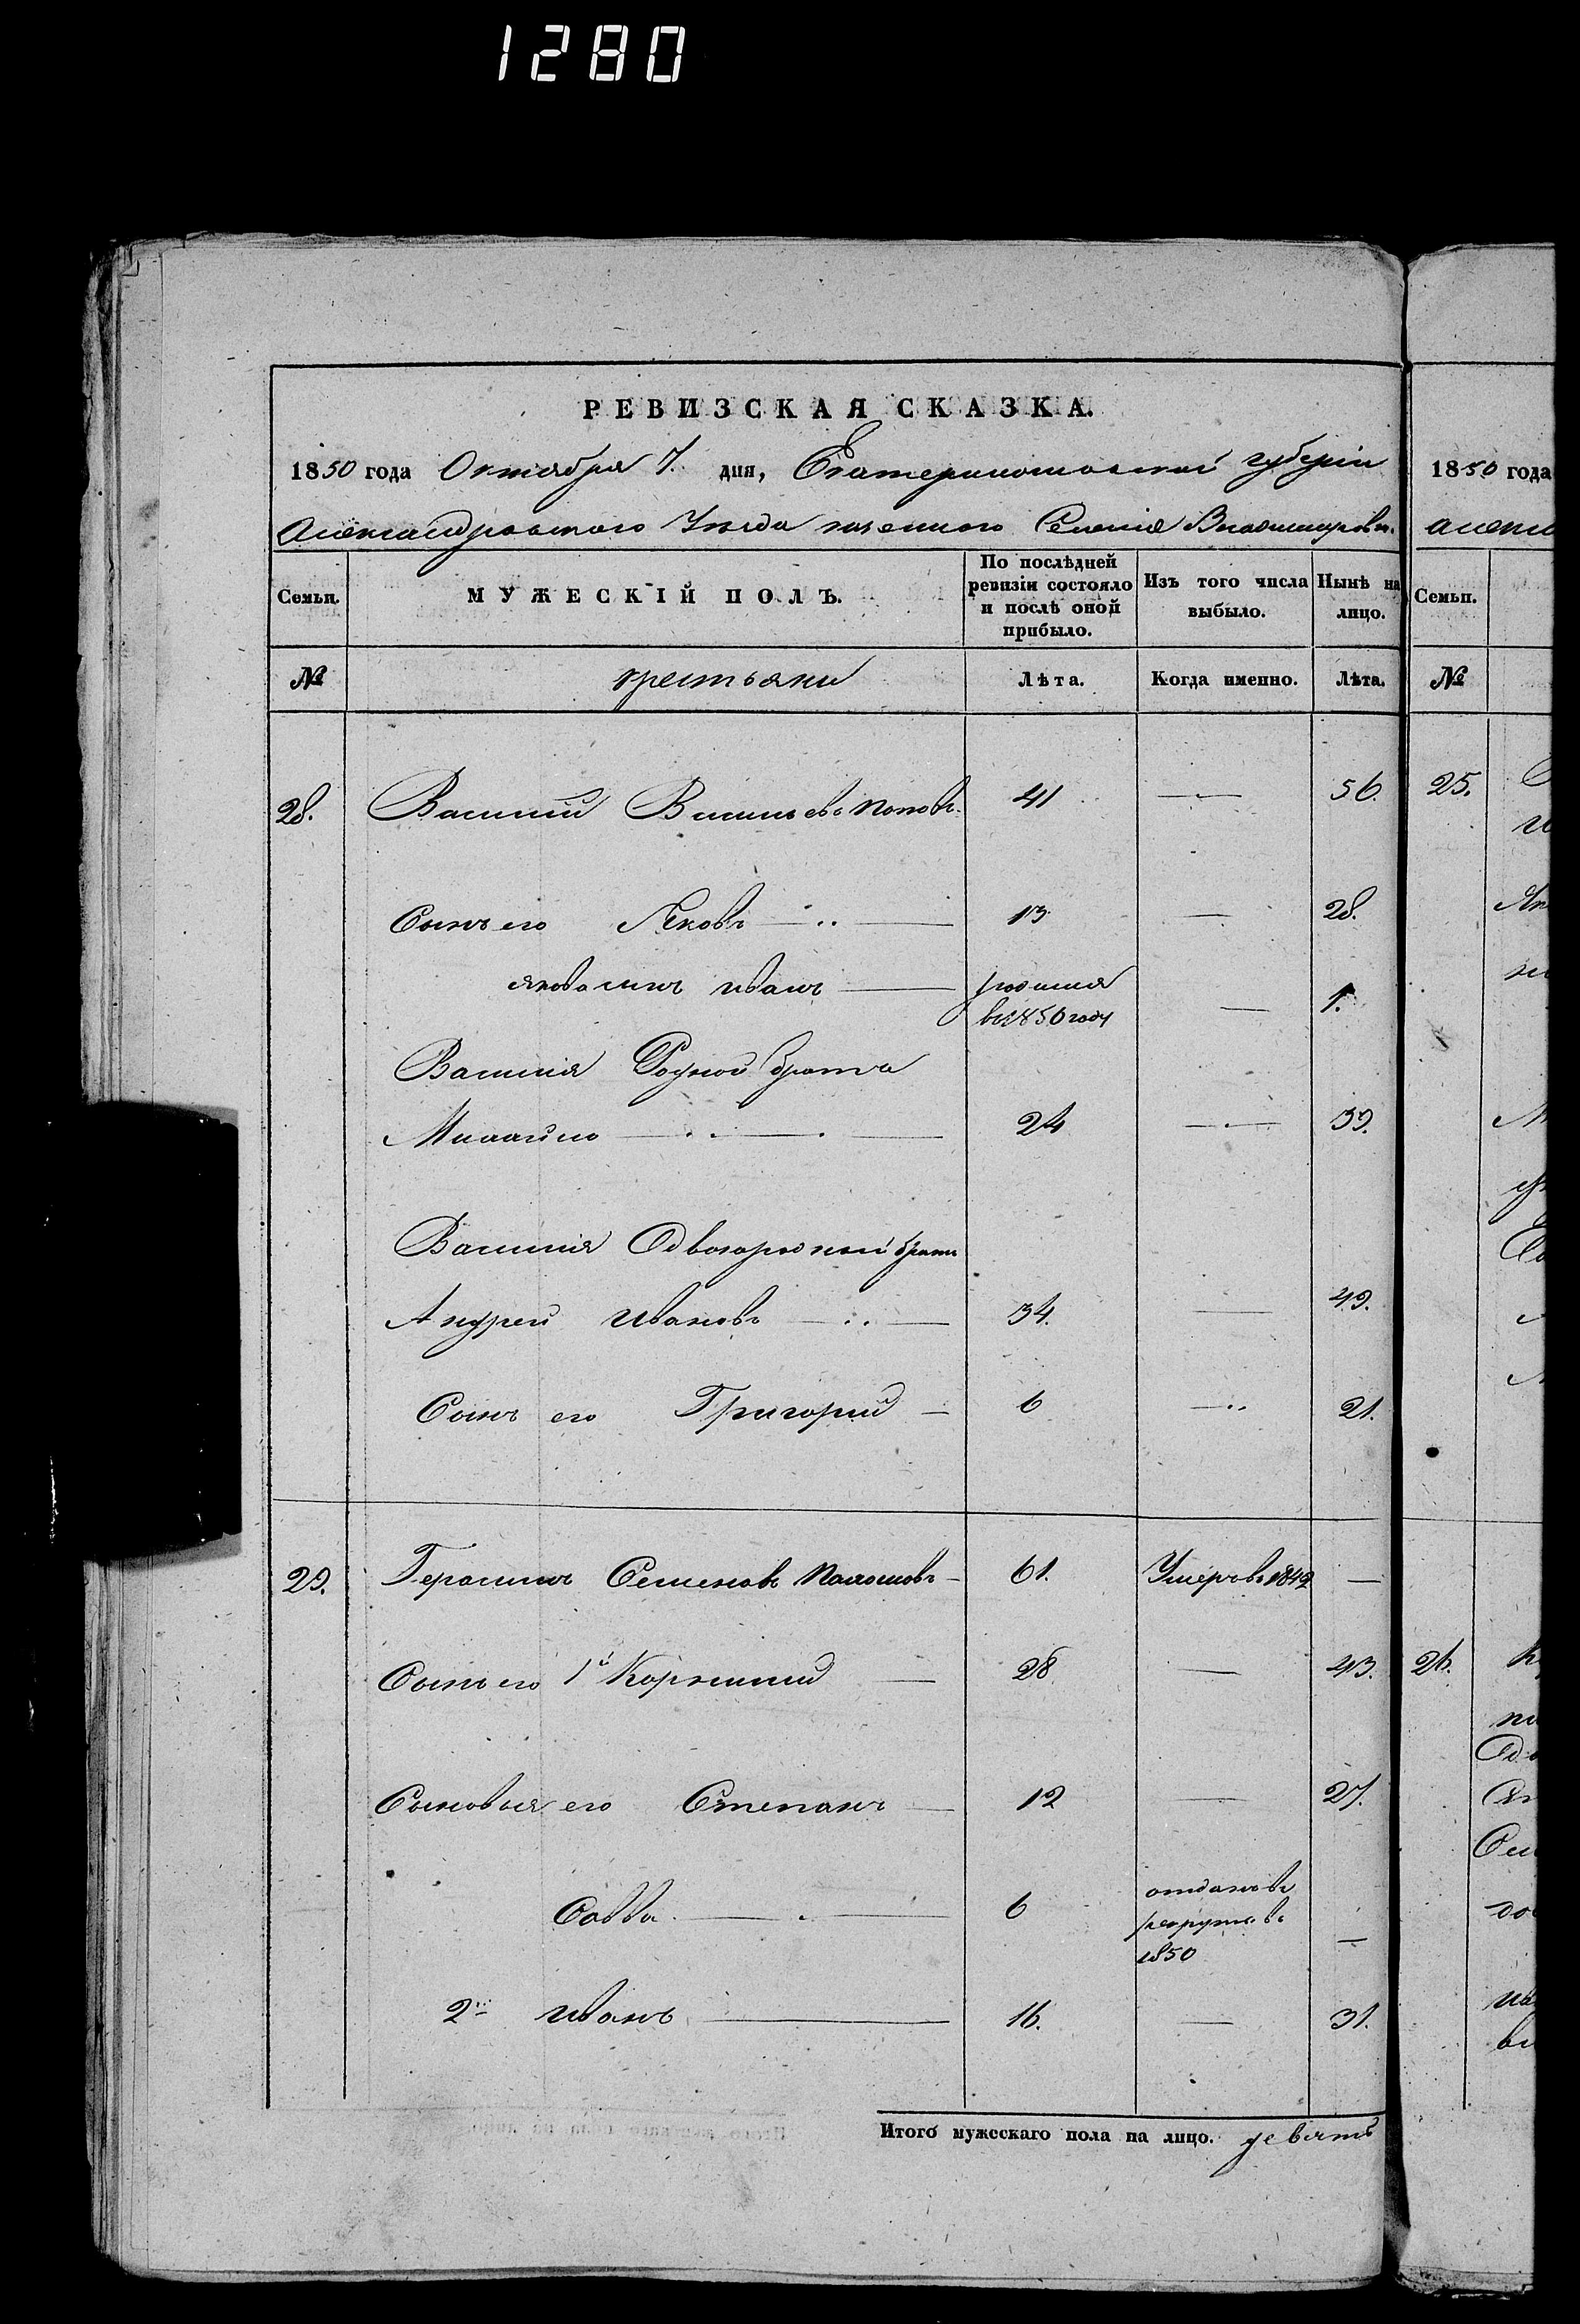 1280
РЕВИЗСКАЯ СКАЗКА.
1850 года Октября 7. дня, Екатеринославской губерніи
Александровского Уезда казенного Селенія
Семьи.
МУЖЕСКІЙ ПОЛЪ.
По послѣдней ревизіи состояло и послѣ оной прибыло.
Изъ того числа выбыло.
Нынѣ на лицо.
№
крестьяне
Лѣта.
Когда именно.
Лѣта.
28. Василий Васильевъ Поповъ. 41 — 56.
Сынъ его Яковъ — 13 — 28.
Якова сынъ Иванъ — родился — 1.
въ 1850 году
Василія Родной братъ
Михайло — 24 — 39.
Василія Двоюродный братъ
Андрей Ивановъ — 34. — 49.
Сынъ его Григорий — 6 — 21.
29. Герасимъ Семеновъ — 61. Умеръ въ 1849 —
Сынъ его 1й Корнилий — 28 — 43.
Сыновья его Степанъ — 12 — 27.
Савва. — 6 отданъ въ
рекруты въ —
1850
2й Иванъ — 16. — 31.
Итого мужескаго пола на лицо. девять
1850 года
Семьи.
№
25.
26.